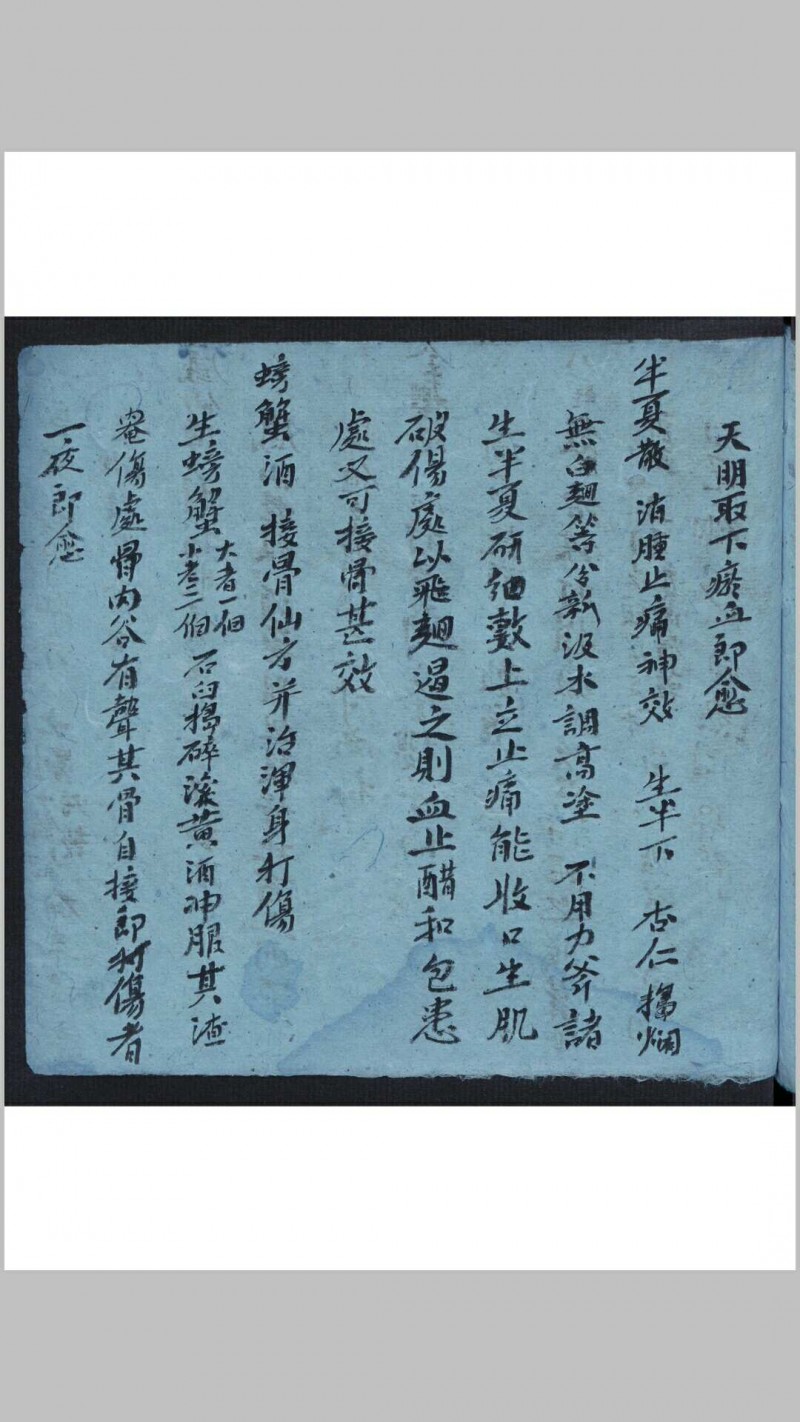 天明取下瘀血即愈
半夏散 消腫止痛神效 生半下 杏仁搗爛
無白麵等分新汲水調膏塗 不用刀斧諸
生半夏研細敷上立止痛能收口生肌
破傷處以飛麵逼之則血止醋和包患
處又可接骨甚效
螃蟹酒 接骨仙方并治渾身打傷
生螃蟹大者一個小者二個石臼搗碎滾黃酒冲服其渣
罨傷處骨內谷有聲其骨自接即打傷者
一夜即愈